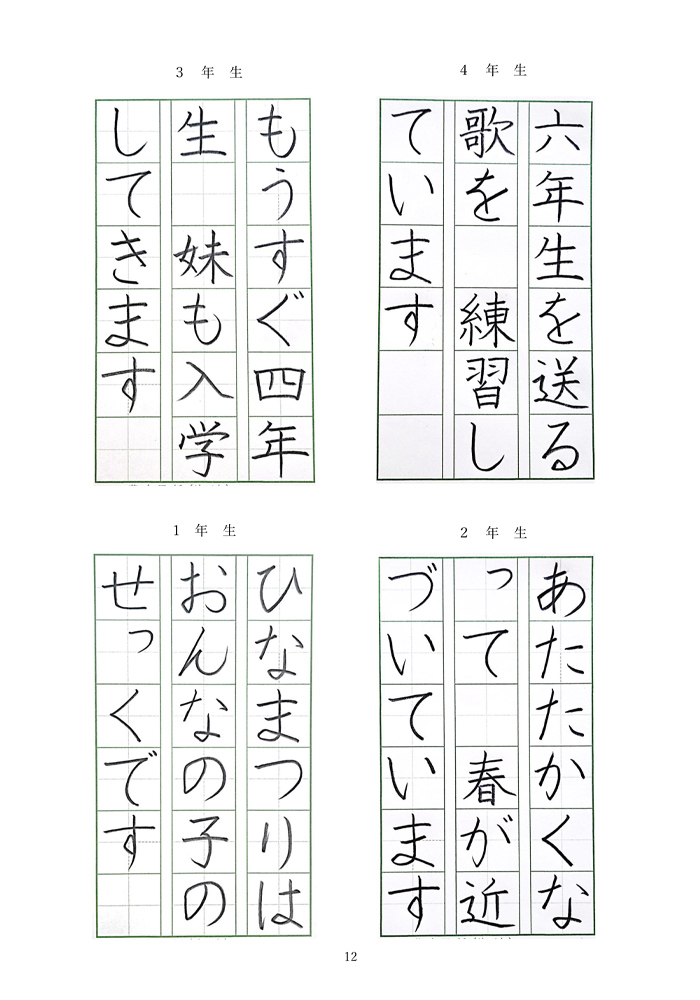 4 年 生
六年生を送る
歌を　練習し
ています
3 年 生
もうすぐ四年
生　妹も入学
してきます
2 年 生
あたたかくな
って　春が近
づいています
1 年 生
ひなまつりは
おんなの子の
せっくです
12